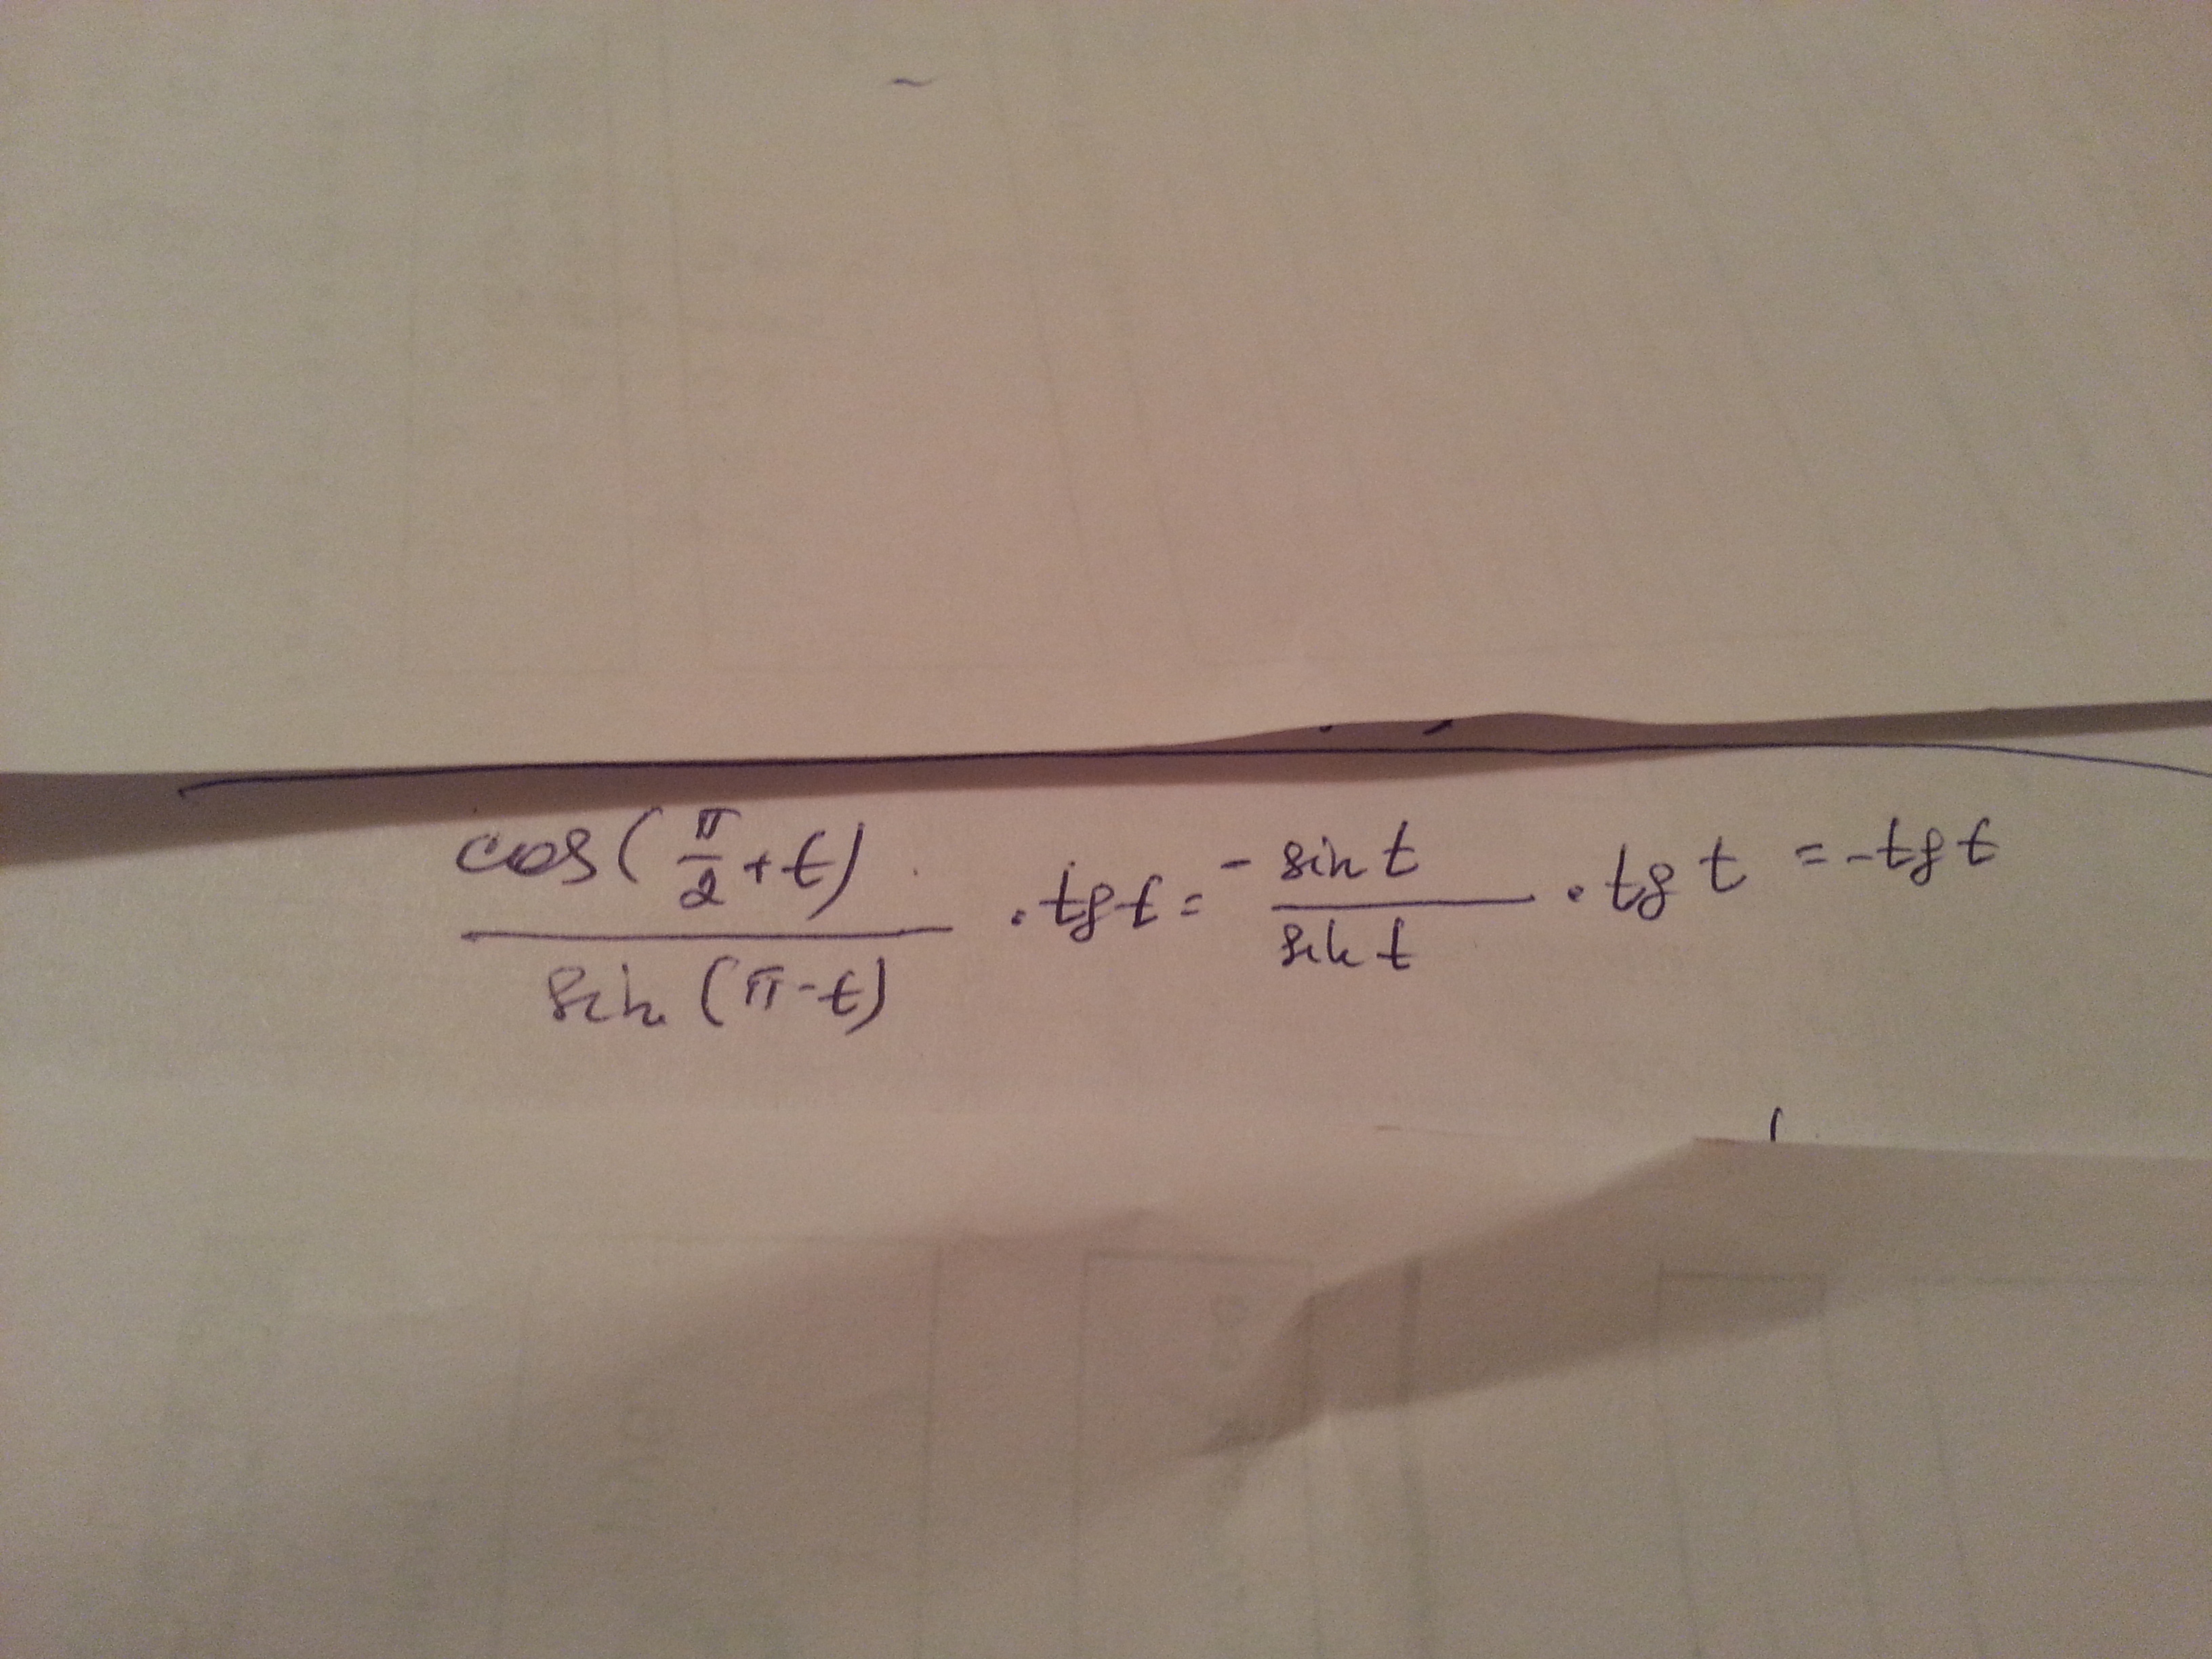 cos(π/2+t)/sin(π-t) · tg t = - sin t/sin t · tg t = -tg t